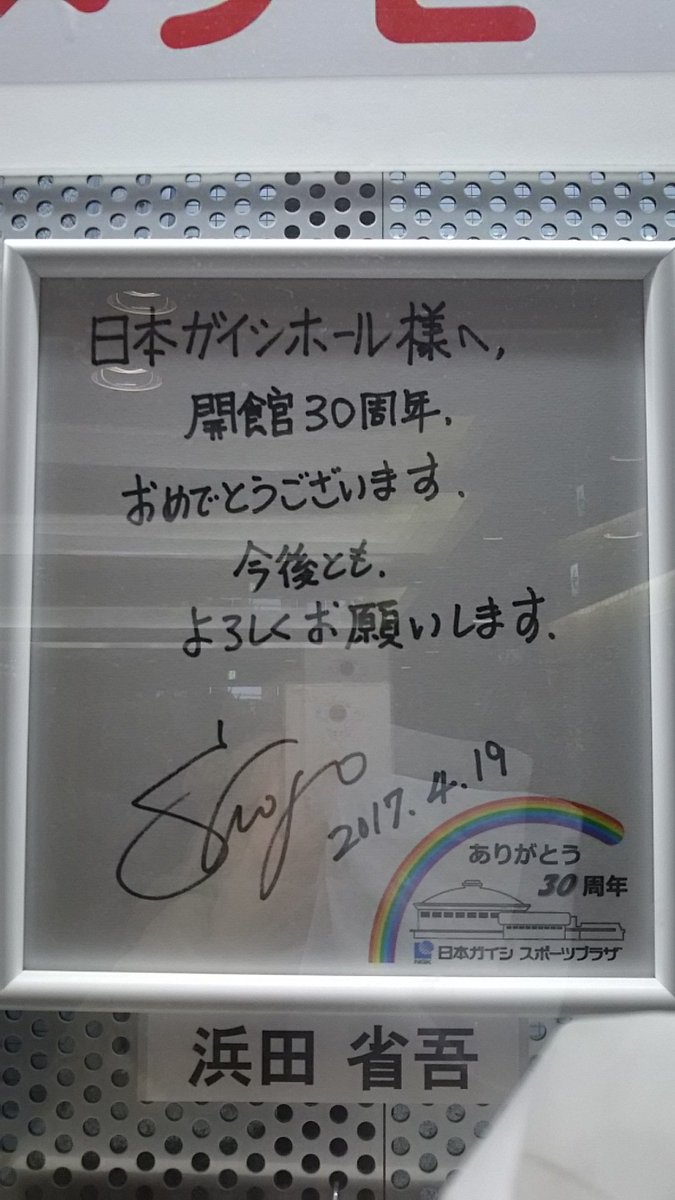 日本ガイシホール様へ,
開館30周年.
おめでとうございます.
今後とも.
よろしくお願いします.
Shogo 2017.4.19
ありがとう
30周年
NGK 日本ガイシ スポーツプラザ
浜田 省吾